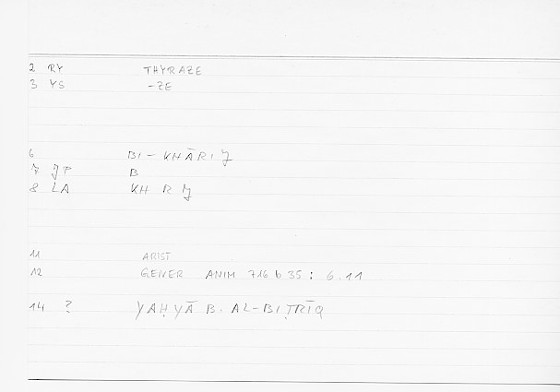 2 RY THYRAZE
3 YS -ZE
6 BI-KHĀRIǦ
7 B
8 LA KH R Ǧ
11 ARIST
12 GENER ANIM 716 b 35 : 6.11
14 ? YAḤYĀ B. AL-BIṬRĪQ